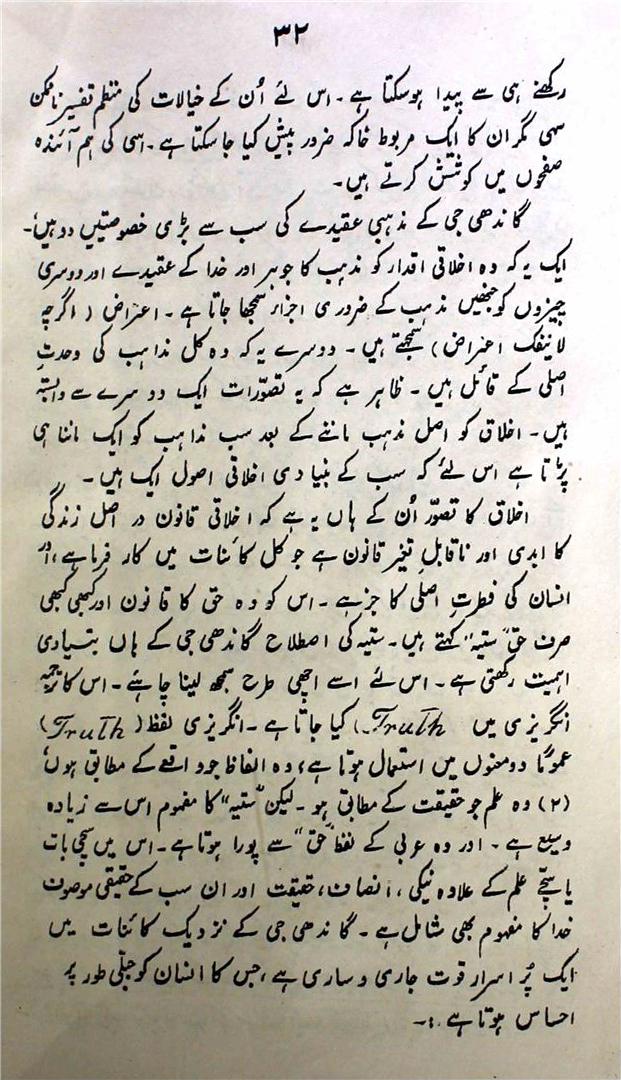 ۳۲
رکھنے ہی سے پیدا ہوسکتا ہے۔ اس لئے اُن کے خیالات کی منظم تفسیر ناممکن
سہی مگر ان کا ایک مربوط خاکہ ضرور پیش کیا جا سکتا ہے۔ اسی کی ہم آئندہ
صفحوں میں کوشش کرتے ہیں۔
گاندھی جی کے مذہبی عقیدے کی سب سے بڑی خصوصیتیں دو ہیں،۔
ایک یہ کہ وہ اخلاقی اقدار کو مذہب کا جوہر اور خدا کے عقیدے اور دوسری
چیزوں کو جنھیں مذہب کے ضروری اجزار سمجھا جاتا ہے۔ اعراض (اگرچہ
لاینفک اعراض) سمجھتے ہیں۔ دوسرے یہ کہ وہ کل مذاہب کی وحدتِ
اصلی کے قائل ہیں۔ ظاہر ہے کہ یہ تصوّرات ایک دوسرے سے وابستہ
ہیں۔ اخلاق کو اصل مذہب ماننے کے بعد سب مذاہب کو ایک ماننا ہی
پڑتا ہے اس لئے کہ سب کے بنیادی اخلاقی اصول ایک ہیں۔
اخلاق کا تصوّر اُن کے ہاں یہ ہے کہ اخلاقی قانون در اصل زندگی
کا ابدی اور ناقابلِ تغیر قانون ہے جو کل کائنات میں کار فرما ہے، اور
انسان کی فطرتِ اصلی کا جز ہے۔ اس کو وہ حق کا قانون اور کبھی کبھی
صرف حق "ستیہ" کہتے ہیں۔ ستیہ کی اصطلاح گاندھی جی کے ہاں بنیادی
اہمیت رکھتی ہے۔ اس لئے اسے اچھی طرح سمجھ لینا چاہئے۔ اس کا ترجمہ
انگریزی میں Truth) کیا جاتا ہے۔ انگریزی لفظ (Truth)
عموماً دو معنوں میں استعمال ہوتا ہے، وہ الفاظ جو واقعے کے مطابق ہوں،
(۲) وہ علم جو حقیقت کے مطابق ہو۔ لیکن "ستیہ" کا مفہوم اس سے زیادہ
وسیع ہے۔ اور وہ عربی کے لفظ "حق" سے پورا ہوتا ہے۔ اس میں سچی بات
یا سچّے علم کے علاوہ نیکی، انصاف، حقیقت اور ان سب کے حقیقی موصوف
خدا کا مفہوم بھی شامل ہے۔ گاندھی جی کے نزدیک کائنات میں
ایک پُر اسرار قوت جاری و ساری ہے، جس کا انسان کو جبلّی طور پر
احساس ہوتا ہے :۔